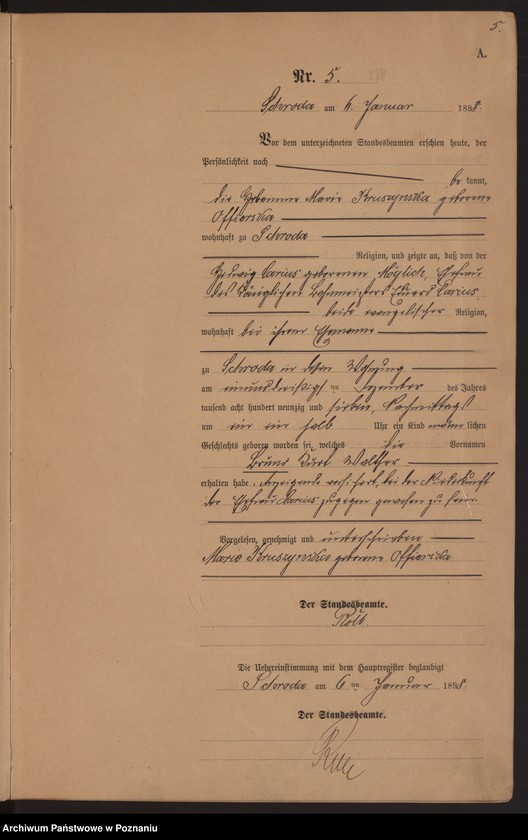 5.
A.
Nr. 5.
Schroda am 6. Januar 1898.
Vor dem unterzeichneten Standesbeamten erschien heute, der
Persönlichkeit nach
be kannt,
die Hebamme Marie Kruszynska geborene
Offierska
wohnhaft zu Schroda
Religion, und zeigte an, daß von der
Hedwig Carius geborenen Möglich, Ehefrau
des Königlichen Bahnmeisters Eduard Carius,
beide evangelischer Religion,
wohnhaft bei ihrem Ehemanne
zu Schroda in deren Wohnung
am einunddreißigsten Dezember des Jahres
tausend acht hundert neunzig und sieben, Nachmittags
um ein halb Uhr ein Kind männlichen
Geschlechts geboren worden sei, welches die Vornamen
Bruno Kurt Walther
erhalten habe. Anzeigende versichert, bei der Niederkunft
der Ehefrau Carius zugegen gewesen zu sein.
Vorgelesen, genehmigt und unterschrieben
Marie Kruszynska geborene Offierska
Der Standesbeamte.
Die Uebereinstimmung mit dem Hauptregister beglaubigt
Schroda am 6ten Januar 1898.
Der Standesbeamte.
Archiwum Państwowe w Poznaniu